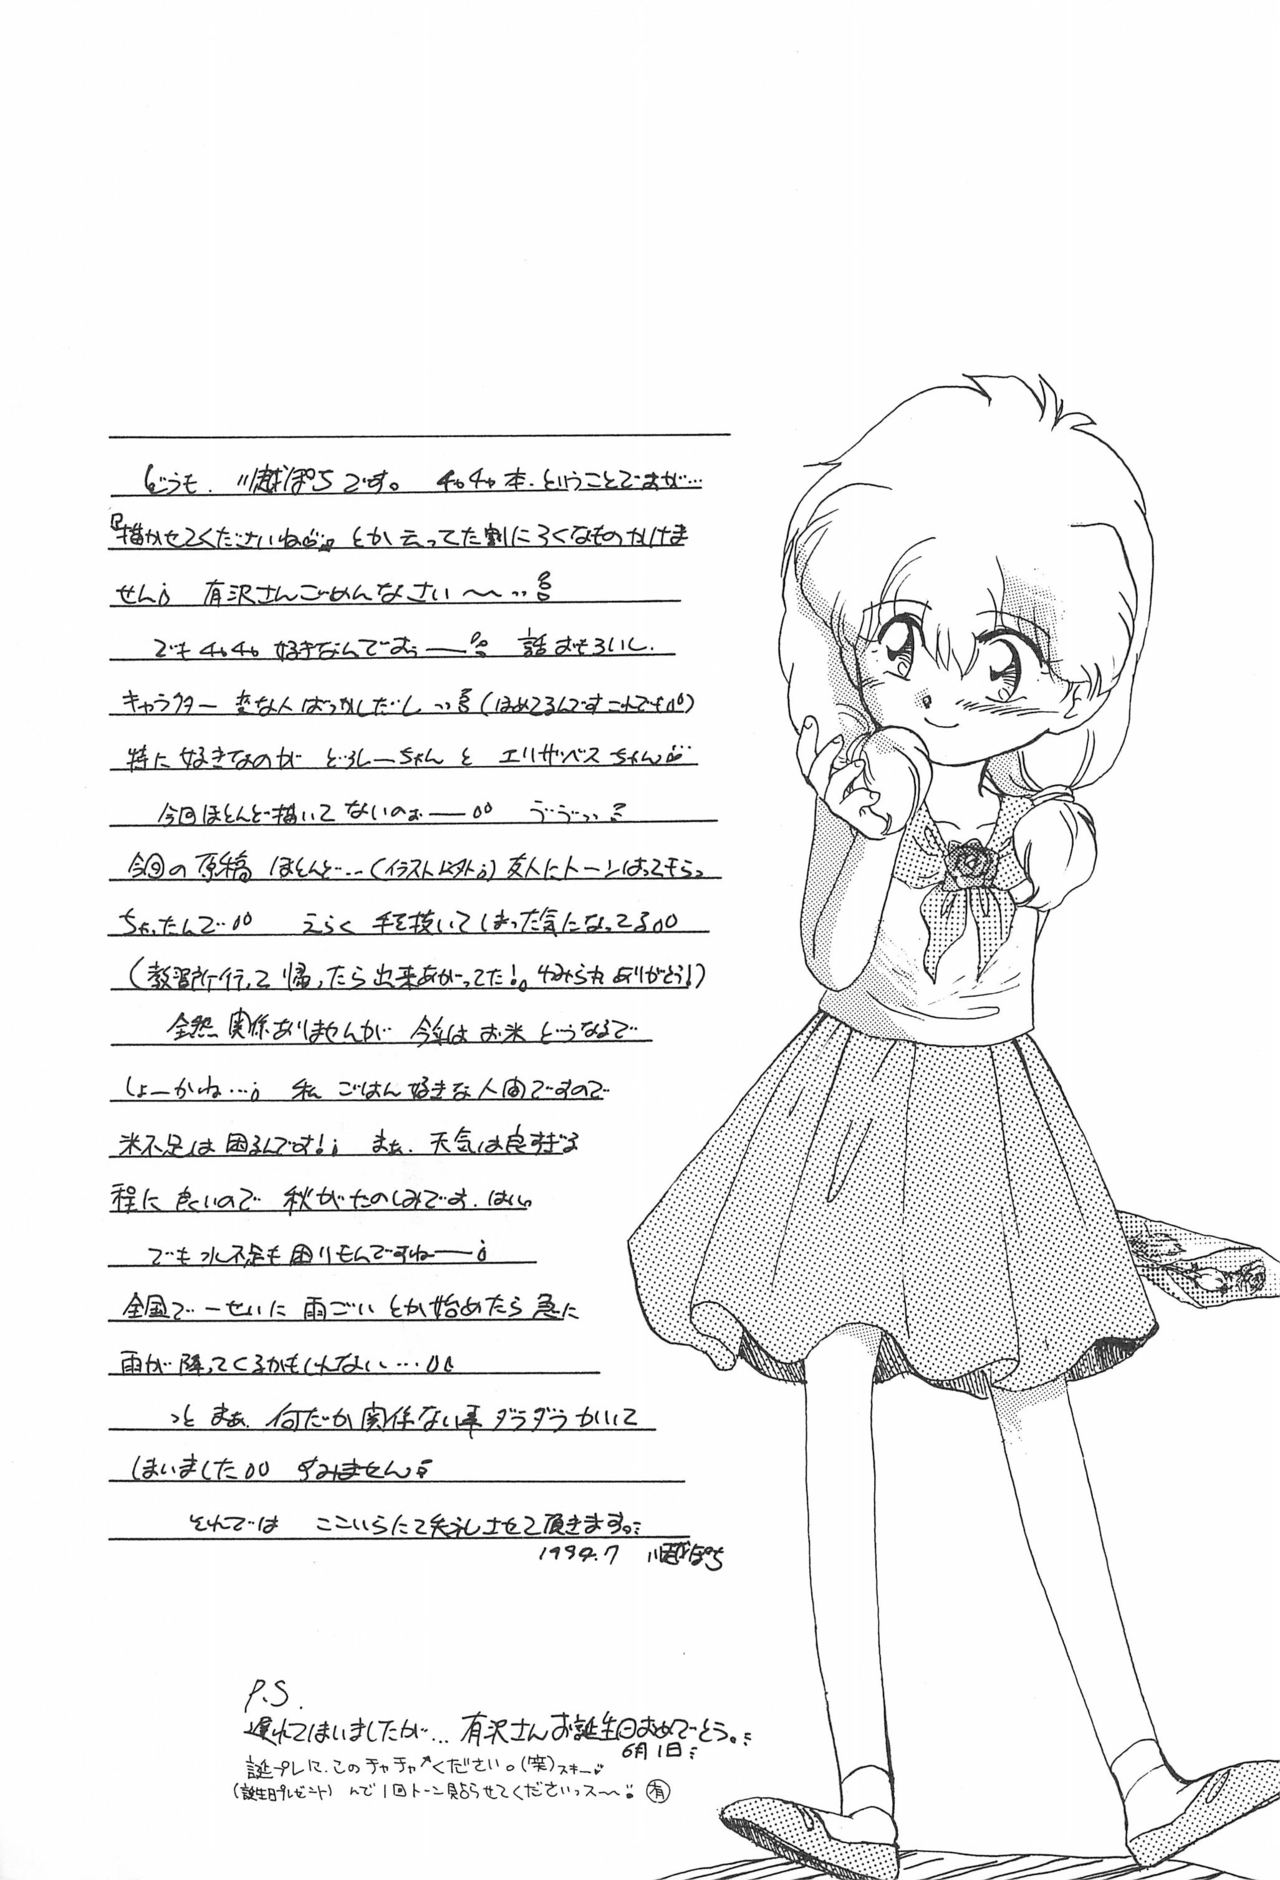 どうも、川越ぽちです。 チャチャ本、ということですが…
『描かせてくださいね』とか云ってた割にろくなものかけま
せん 有沢さんごめんなさい〜〜
でもチャチャ好きなんですぅ── 話おもろいし、
キャラクター 変な人ばっかしだし (ほめてるんですこれでも)
特に好きなのが どろしーちゃん と エリザベスちゃん
今回ほとんど描いてないのぉ── ゔゔっ
今回の原稿 ほとんど…(イラスト以外) 友人にトーンはってもらっ
ちゃったんで えらく 手を抜いてしまった気になってる
(教習所行って 帰ったら出来あがってた! ありがとう!)
全然 関係ありませんが 今年は お米 どうなるで
しょーかね… 私 ごはん好きな人間ですので
米不足は困るんです! まぁ、天気は良すぎる
程に 良いので 秋がたのしみです、はい。
でも水不足も困りもんですねー
全国で 一せいに 雨ごい とか始めたら 急に
雨が降ってくるかもしれない…
っと まぁ、何だか関係ない事 ダラダラかいて
しまいました すみません
それでは ここいらにて失礼させて頂きます。
1994.7 川越ぽち
P.S.
遅れてしまいましたが… 有沢さんお誕生日おめでとう。
6月1日
誕プレに、このチャチャくください。(笑)スキー
(誕生日プレゼント) んで1回トーン貼らせてくださいっス〜 有